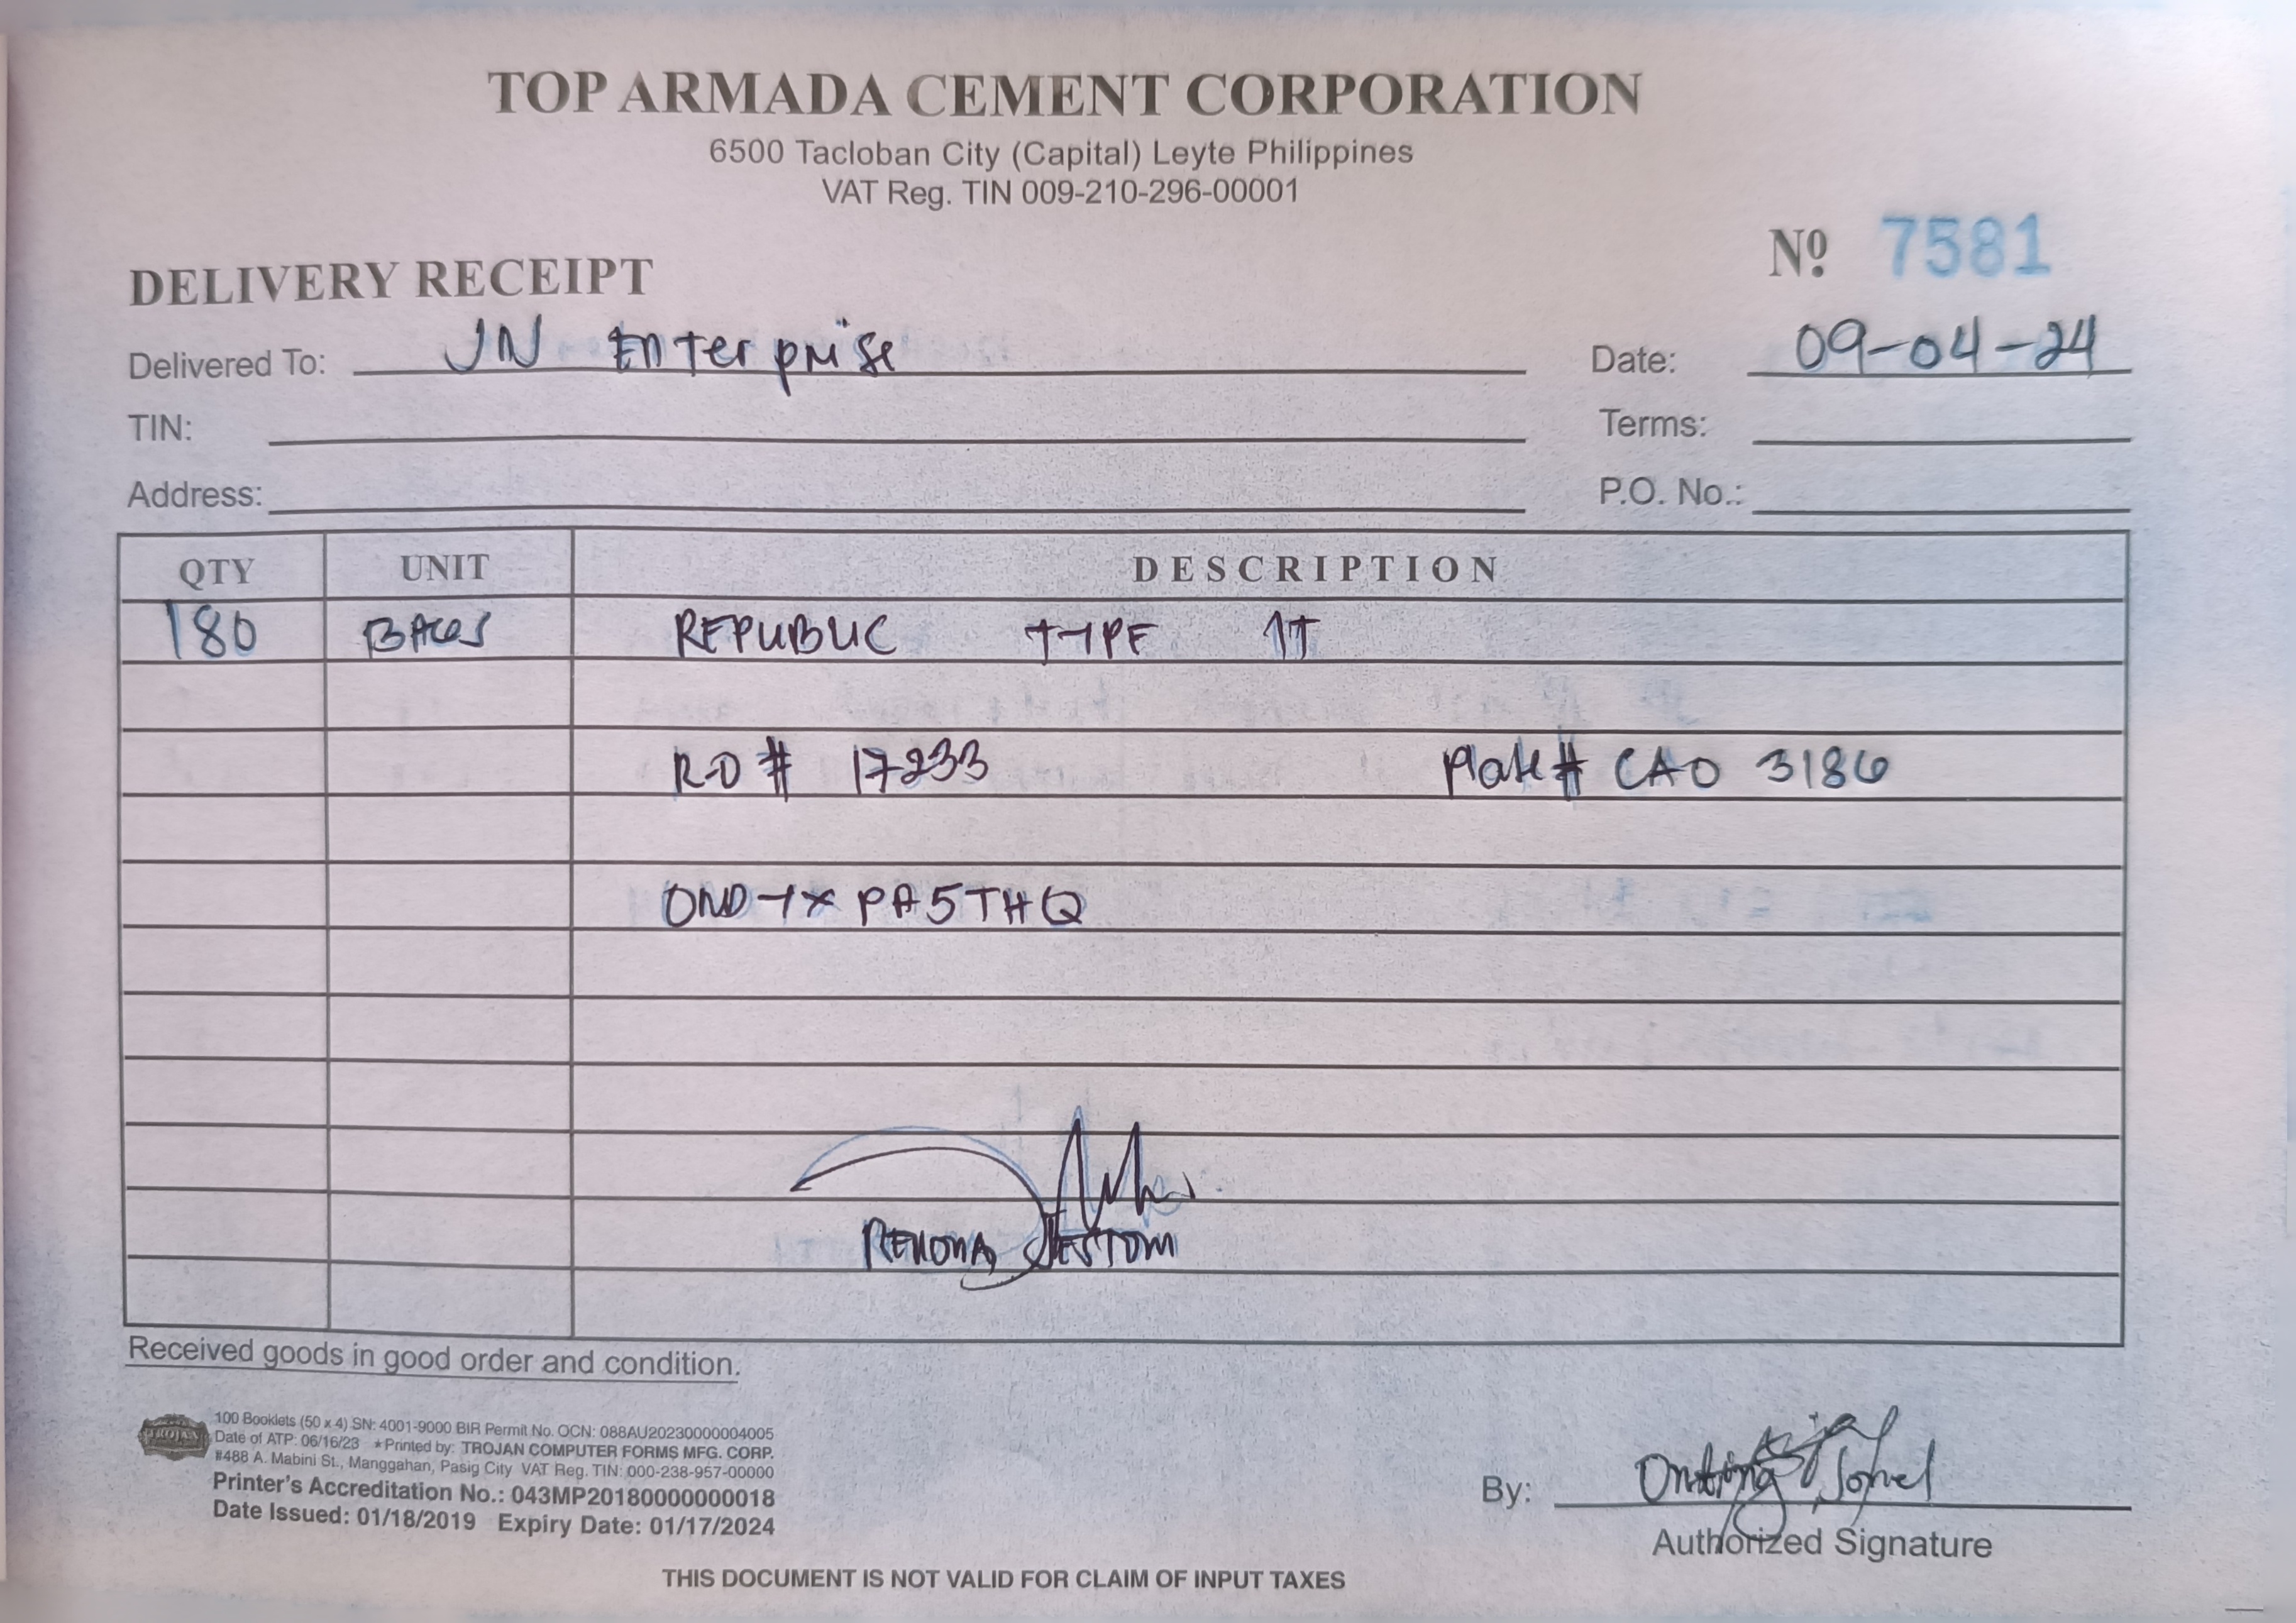 TOP ARMADA CEMENT CORPORATION
6500 Tacloban City (Capital) Leyte Philippines
VAT Reg. TIN 009-210-296-00001
Nº 7581
DELIVERY RECEIPT
Delivered To: JN Enterprise Date: 09-04-24
TIN: Terms:
Address: P.O. No.:
QTY UNIT DESCRIPTION
180 BAGS REPUBLIC TYPE 1T
RO # 17233 Plate # CAO 3186
PA5THQ
JESTOM
Received goods in good order and condition.
TROJAN
100 Booklets (50 x 4) SN: 4001-9000 BIR Permit No. OCN: 088AU20230000004005
Date of ATP: 06/16/23 *Printed by: TROJAN COMPUTER FORMS MFG. CORP.
#488 A. Mabini St., Manggahan, Pasig City VAT Reg. TIN: 000-238-957-00000
Printer's Accreditation No.: 043MP20180000000018
Date Issued: 01/18/2019 Expiry Date: 01/17/2024
By:
Authorized Signature
THIS DOCUMENT IS NOT VALID FOR CLAIM OF INPUT TAXES